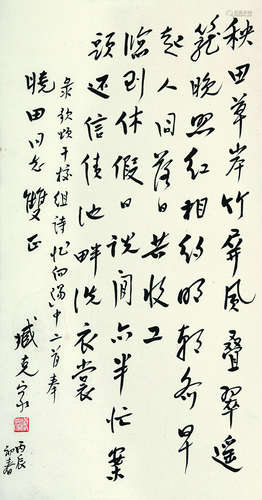 秧田草岸竹屏风叠翠遥
笼晚照红相约明朝务早
起人间落日共收工
临到休假日说闲亦半忙案
頭还信债池畔洗衣裳
录歌颂干校组诗忆向阳中二首奉
晓田同志雙正
臧克家
丙辰
初春